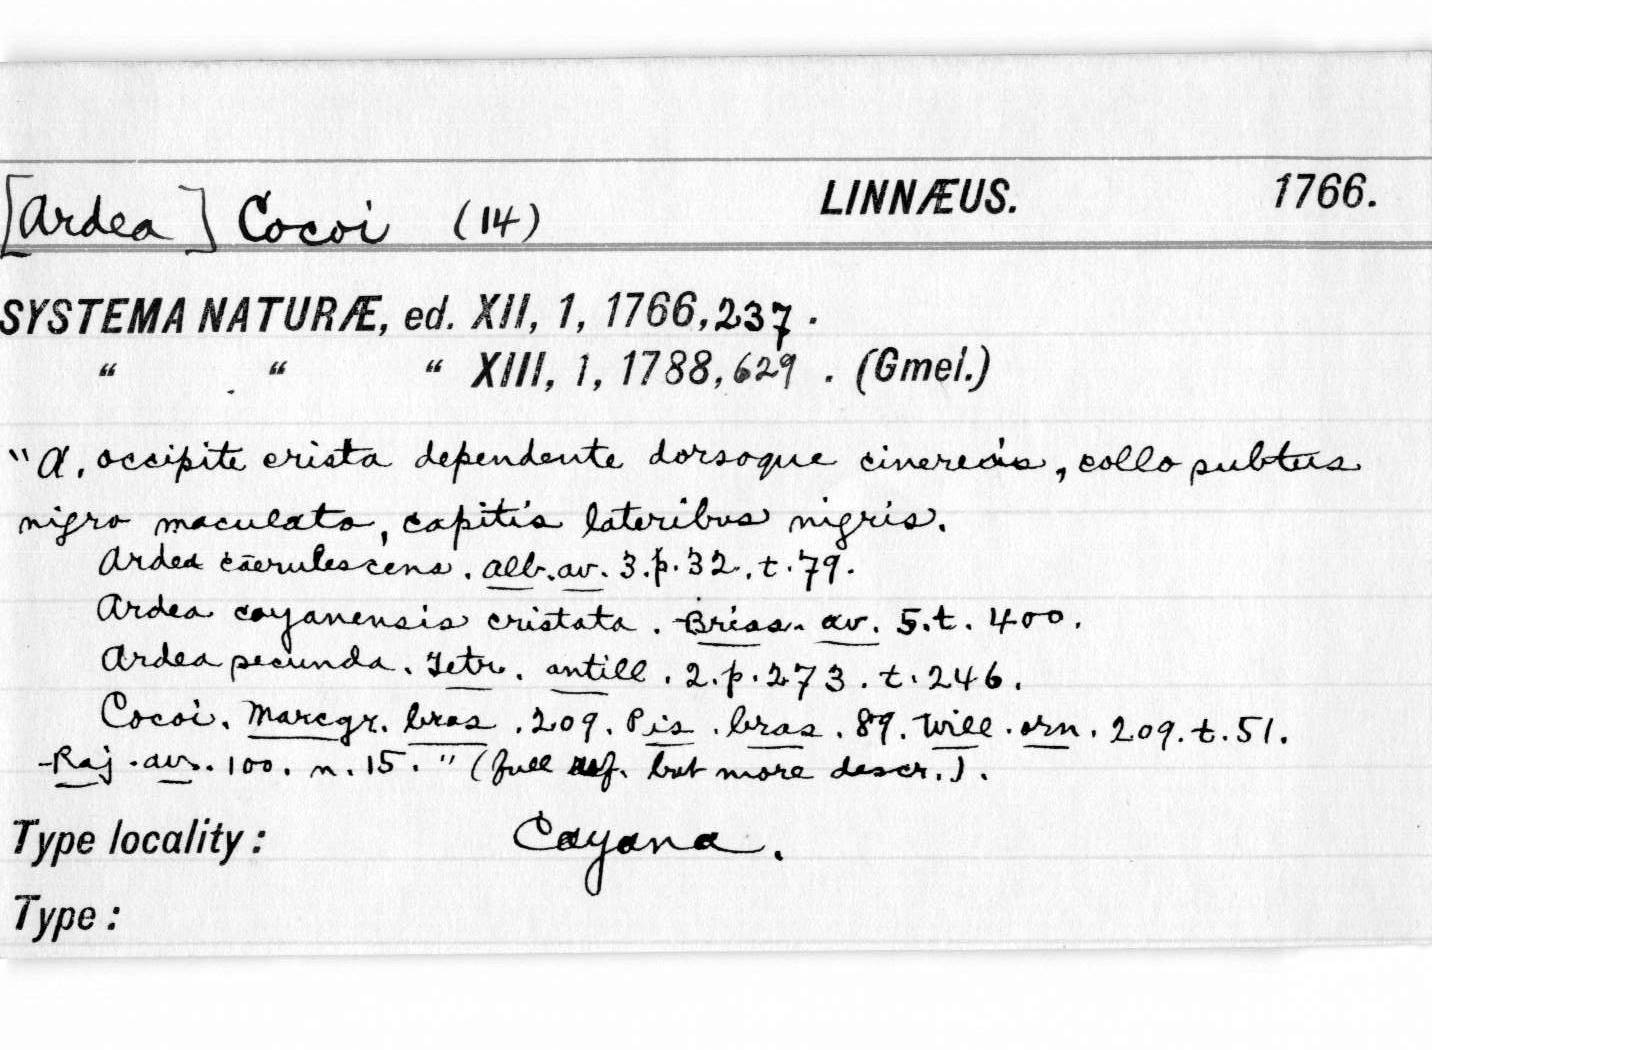 [Ardea] Cocoi (14) LINNÆUS. 1766.
SYSTEMA NATURÆ, ed. XII, 1, 1766, 237.
" " " XIII, 1, 1788, 629. (Gmel.)
"A. occipite crista dependente dorsoque cinereis, collo subtus
nigro maculato, capitis lateribus nigris.
Ardea cærulescens. Alb. av. 3. p. 32. t. 79.
Ardea cayanensis cristata. Briss. av. 5. t. 400.
Ardea secunda. Tetr. antill. 2. p. 273. t. 246.
Cocoi. Marcgr. bras. 209. Pis. bras. 89. Will. orn. 209. t. 51.
Raj. av. 100. n. 15." (full ref. but more descr.).
Type locality: Cayana.
Type: